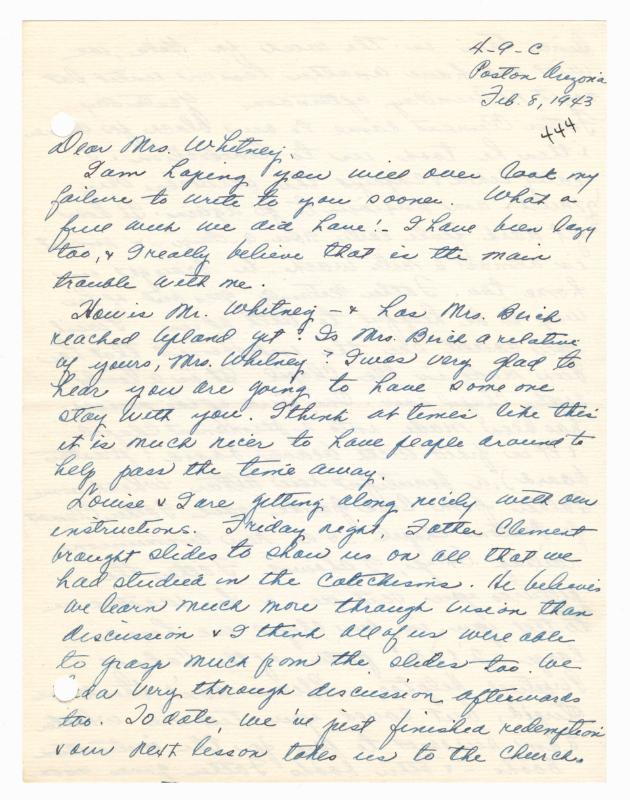 4-9-C
Poston Arizona
Feb. 8, 1943
444
Dear Mrs. Whitney:
I am hoping you will over look my
failure to write to you sooner. What a
fine week we did have! - I have been lazy
too, & I really believe that is the main
trouble with me.
How is Mr. Whitney - & has Mrs. Birch
reached Upland yet? Is Mrs. Birch a relative
of yours, Mrs. Whitney? I was very glad to
hear you are going to have some one
stay with you. I think at times like this
it is much nicer to have people around to
help pass the time away.
Louise & I are getting along nicely with our
instructions. Friday night, Father Clement
brought slides to show us on all that we
had studied in the catechisms. He believes
we learn much more through vision than
discussion & I think all of us were able
to grasp much from the slides too. We
had a very thorough discussion afterwards
too. To date, we've just finished redemption
& our next lesson takes us to the Church.